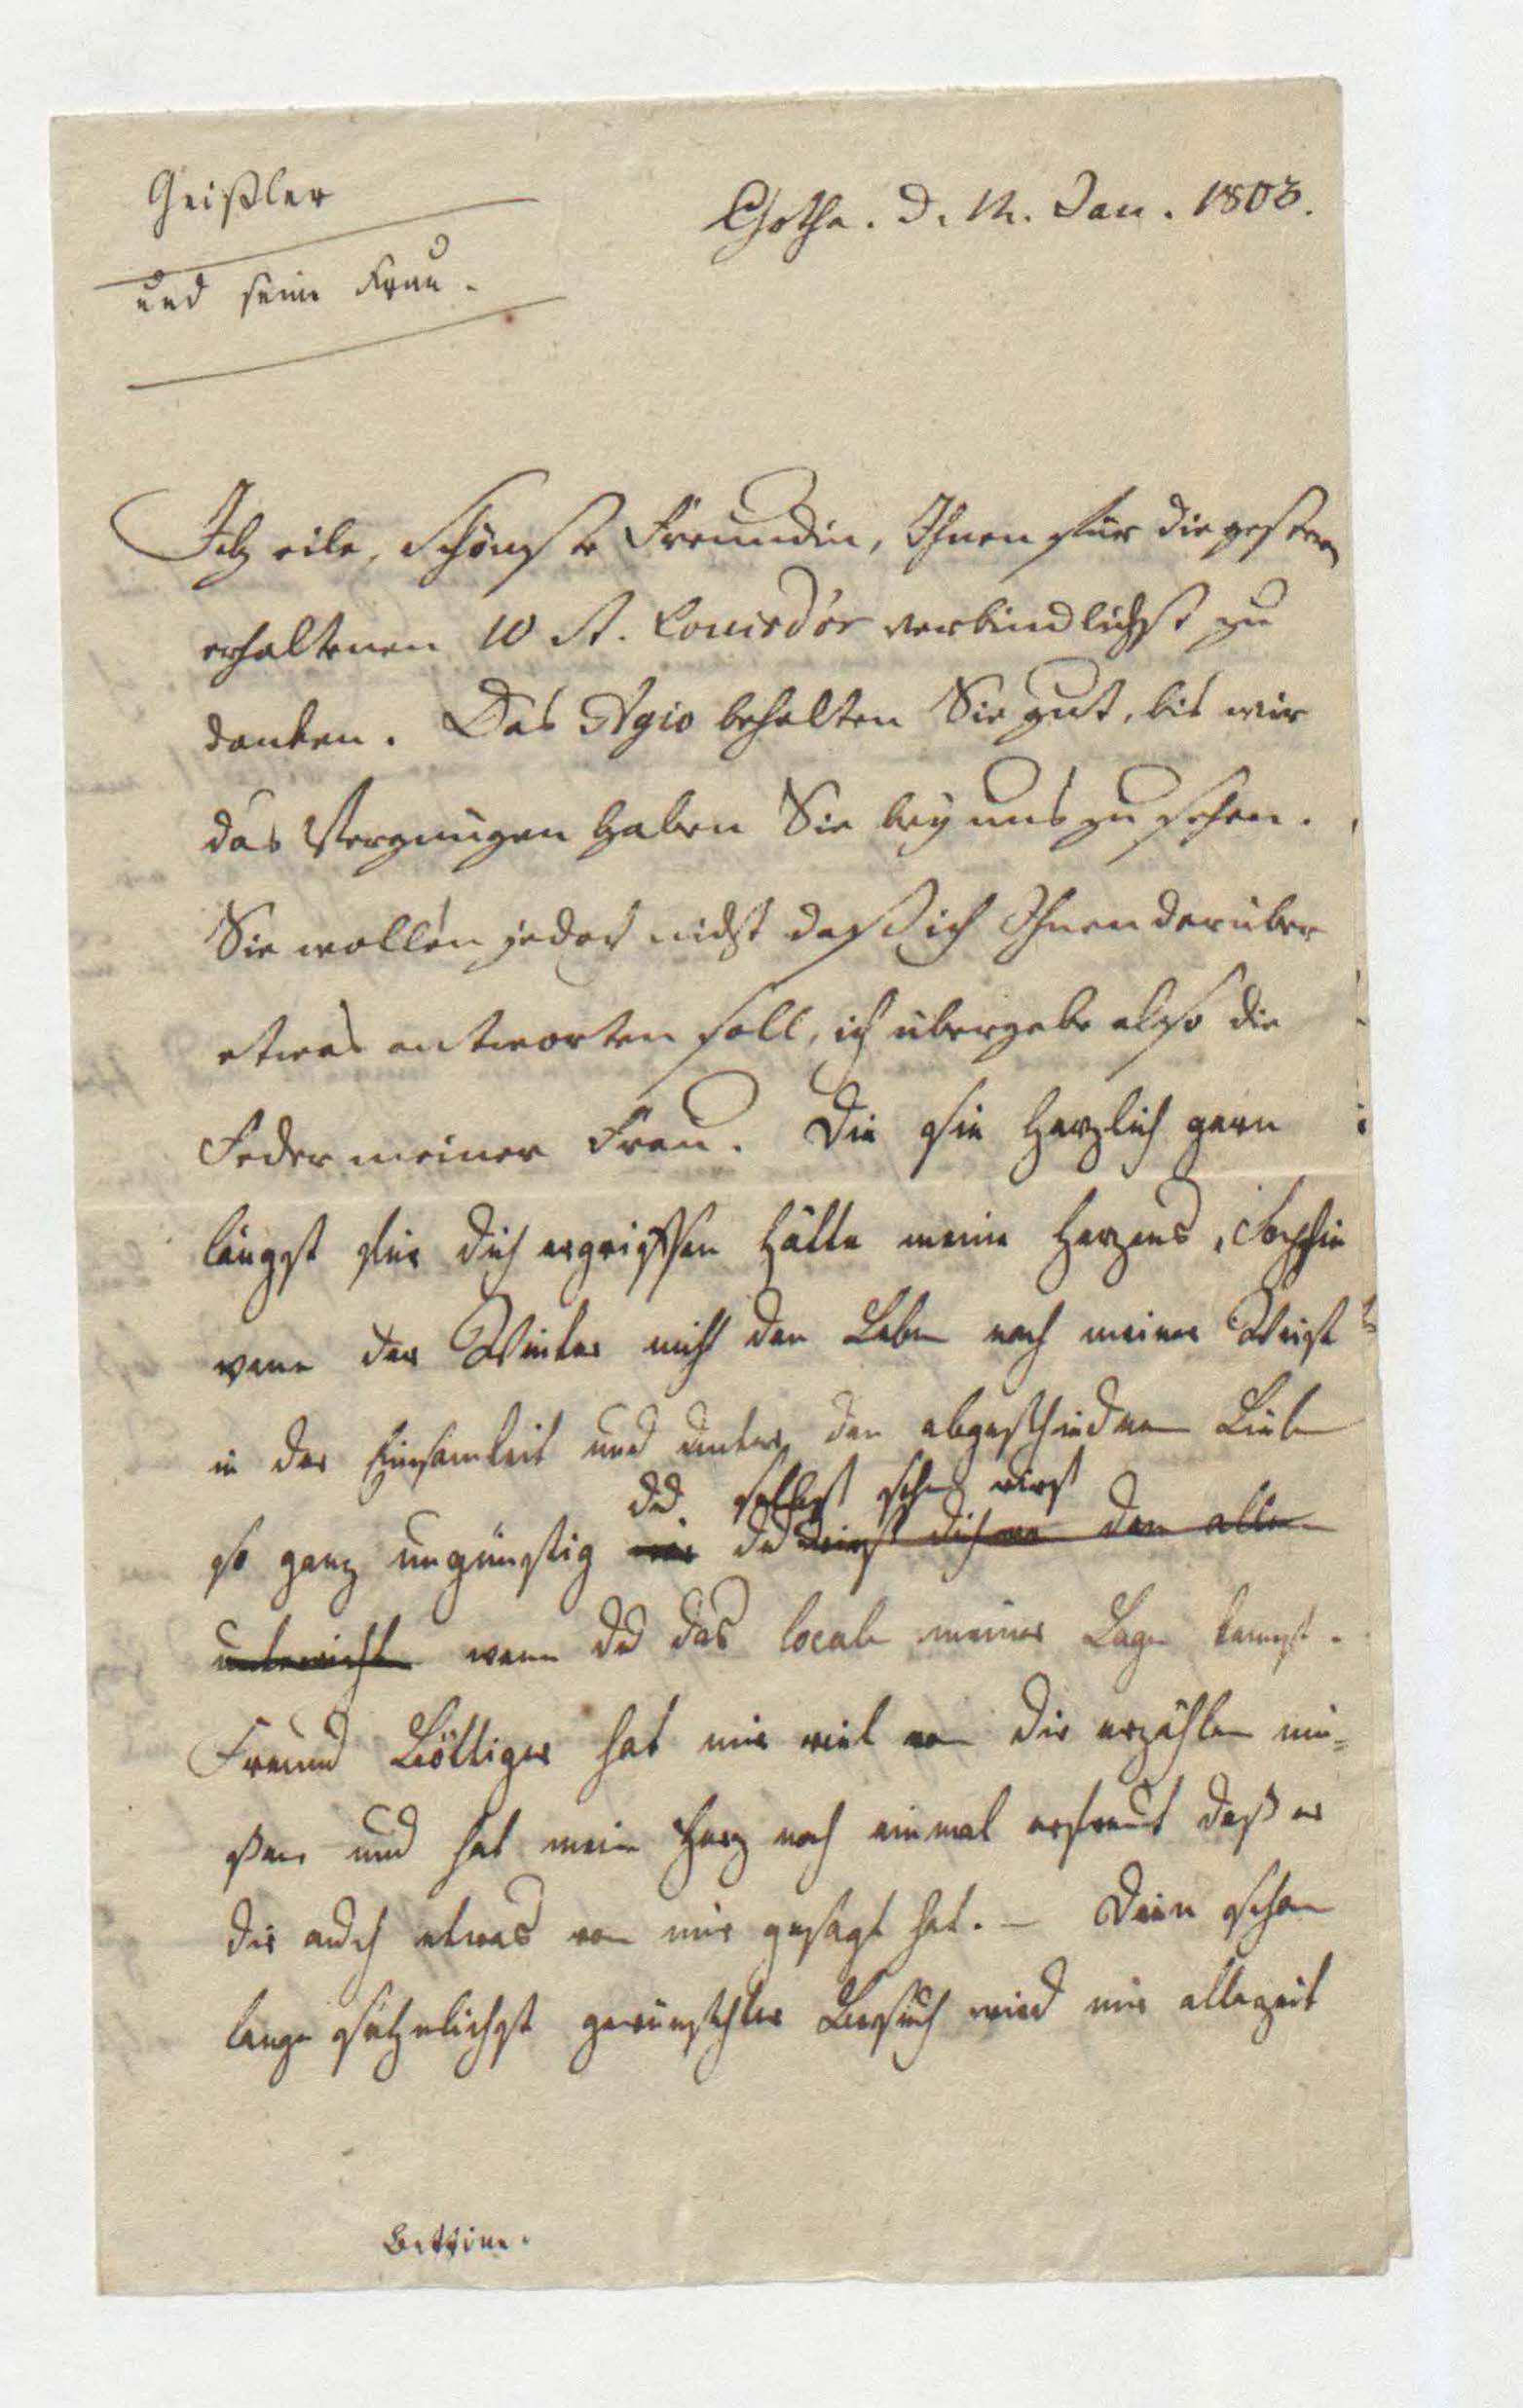 Geißler
und seine Frau.
Gotha. d. 12. Jan. 1803.
Ich eile, schönste Freundin, Ihnen für die gestern
erhaltenen 10 St. Louisd'or verbindlichst zu
danken. Das Agio behalten Sie gut, bis wir
das Vergnügen haben Sie bey uns zu sehen.
Sie wollen jedoch nicht daß ich Ihnen darüber
etwas antworten soll, ich übergebe also die
Feder meiner Frau. Die sie herzlich gern
längst für dich ergriffen hätte meine Herzens, Sophie
wenn der Winter nicht den Leben nach meiner Weise
in der Einsamkeit und unter den abgeschiednen Lieben
du selbst sehn wirst
so ganz ungünstig wär du wirst dich von dem allen
unterrichten wenn du das locale meiner Lage kennst.
Freund Böttiger hat mir viel von dir erzählen mü-
ßen und hat mein Herz noch einmal erfreut daß er
dir auch etwas von mir gesagt hat. – Dein schon
lange sehnlichst gewünschter Besuch wird mir allezeit
Bettine.